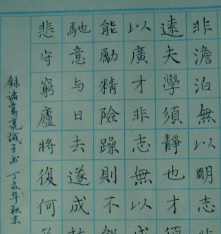 非澹泊無以明志
遠夫學須靜也才
以廣才非志無以
能勵精險躁則不
馳意与日去遂成
悲守窮廬將復何
錄諸葛亮誡子书 丁亥年秋末